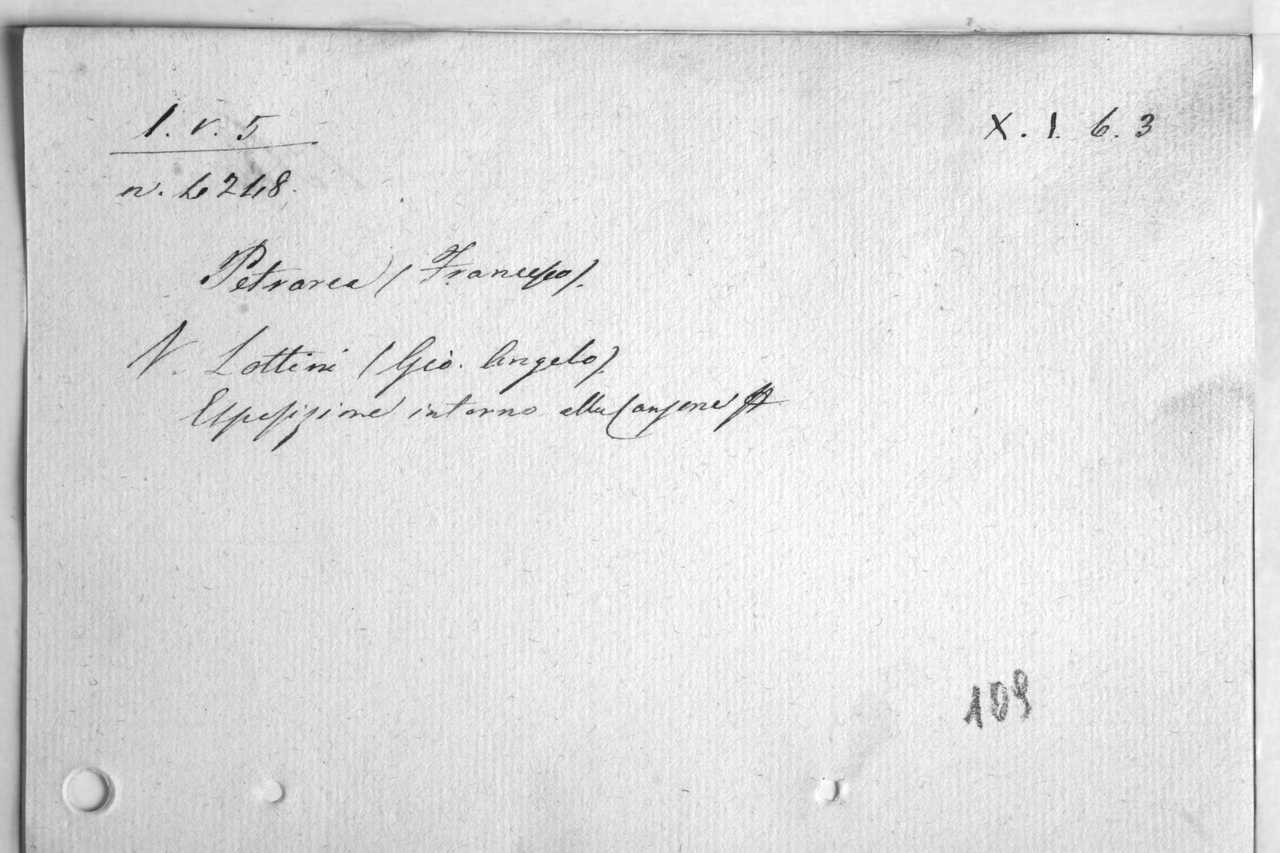 1. V. 5
X. 1. 6. 3
n. 4248.
Petrarca (Francesco).
V. Lottini (Gio. Angelo)
Esposizione intorno alla Canzone
109